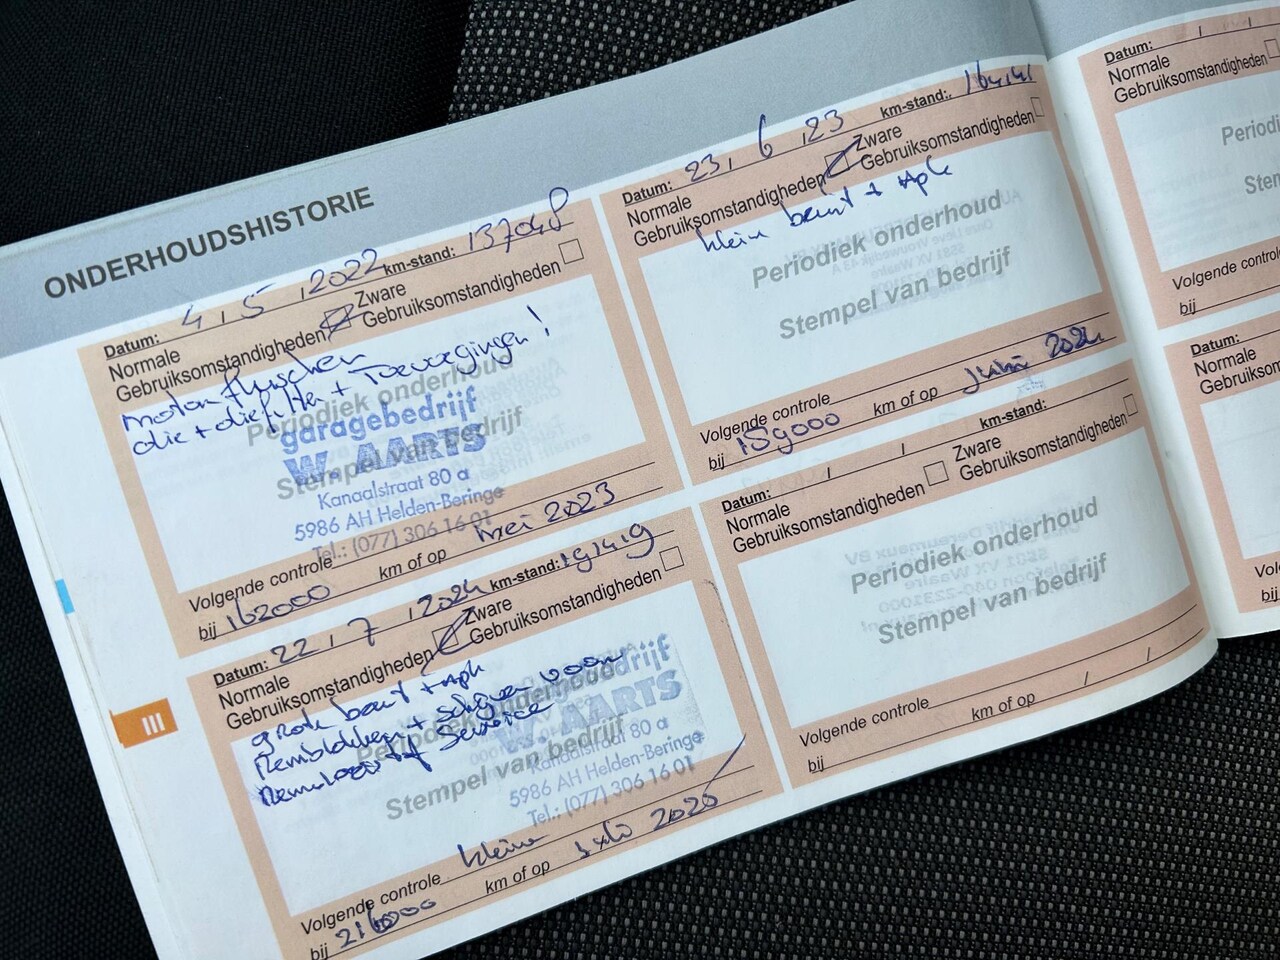 ONDERHOUDSHISTORIE
Datum: 4 / 5 / 2022 km-stand: 137048
Normale Gebruiksomstandigheden
Zware Gebruiksomstandigheden
motor flushen
olie + oliefilter + Toevoegingen!
Periodiek onderhoud
garagebedrijf
W. AARTS
Stempel van bedrijf
Kanaalstraat 80 a
5986 AH Helden-Beringe
Tel.: (077) 306 16 01
Volgende controle
bij 162000 km of op mei 2023
Datum: 23 / 6 / 23 km-stand:
Normale Gebruiksomstandigheden
Zware Gebruiksomstandigheden
klein beurt + Apk
Periodiek onderhoud
Stempel van bedrijf
Volgende controle
bij 189000 km of op juni 2024
Datum: 22 / 7 / 2024 km-stand:
Normale Gebruiksomstandigheden
Zware Gebruiksomstandigheden
grote beurt + Apk
Remblokken + schijven voor
Periodiek onderhoud
garagebedrijf
W. AARTS
Stempel van bedrijf
Kanaalstraat 80 a
5986 AH Helden-Beringe
Tel.: (077) 306 16 01
kleine
Volgende controle
bij 216000 km of op Juli 2025
Datum: / / km-stand:
Normale Gebruiksomstandigheden
Zware Gebruiksomstandigheden
Periodiek onderhoud
Stempel van bedrijf
Volgende controle
bij km of op / /
III
Datum: / /
Normale
Gebruiksomstandigheden
Volgende controle
bij
Datum:
Normale
Gebruiksomstandigheden